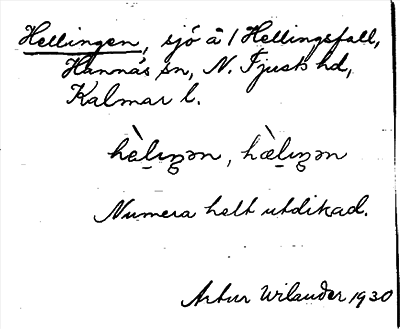 Hellingen, sjö å / Hellingsfall,
Hannäs sn, N. Tjust hd,
Kalmar l.
hèlıŋən, hæ̀lıŋən
Numera helt utdikad.
Artur Wilander 1930